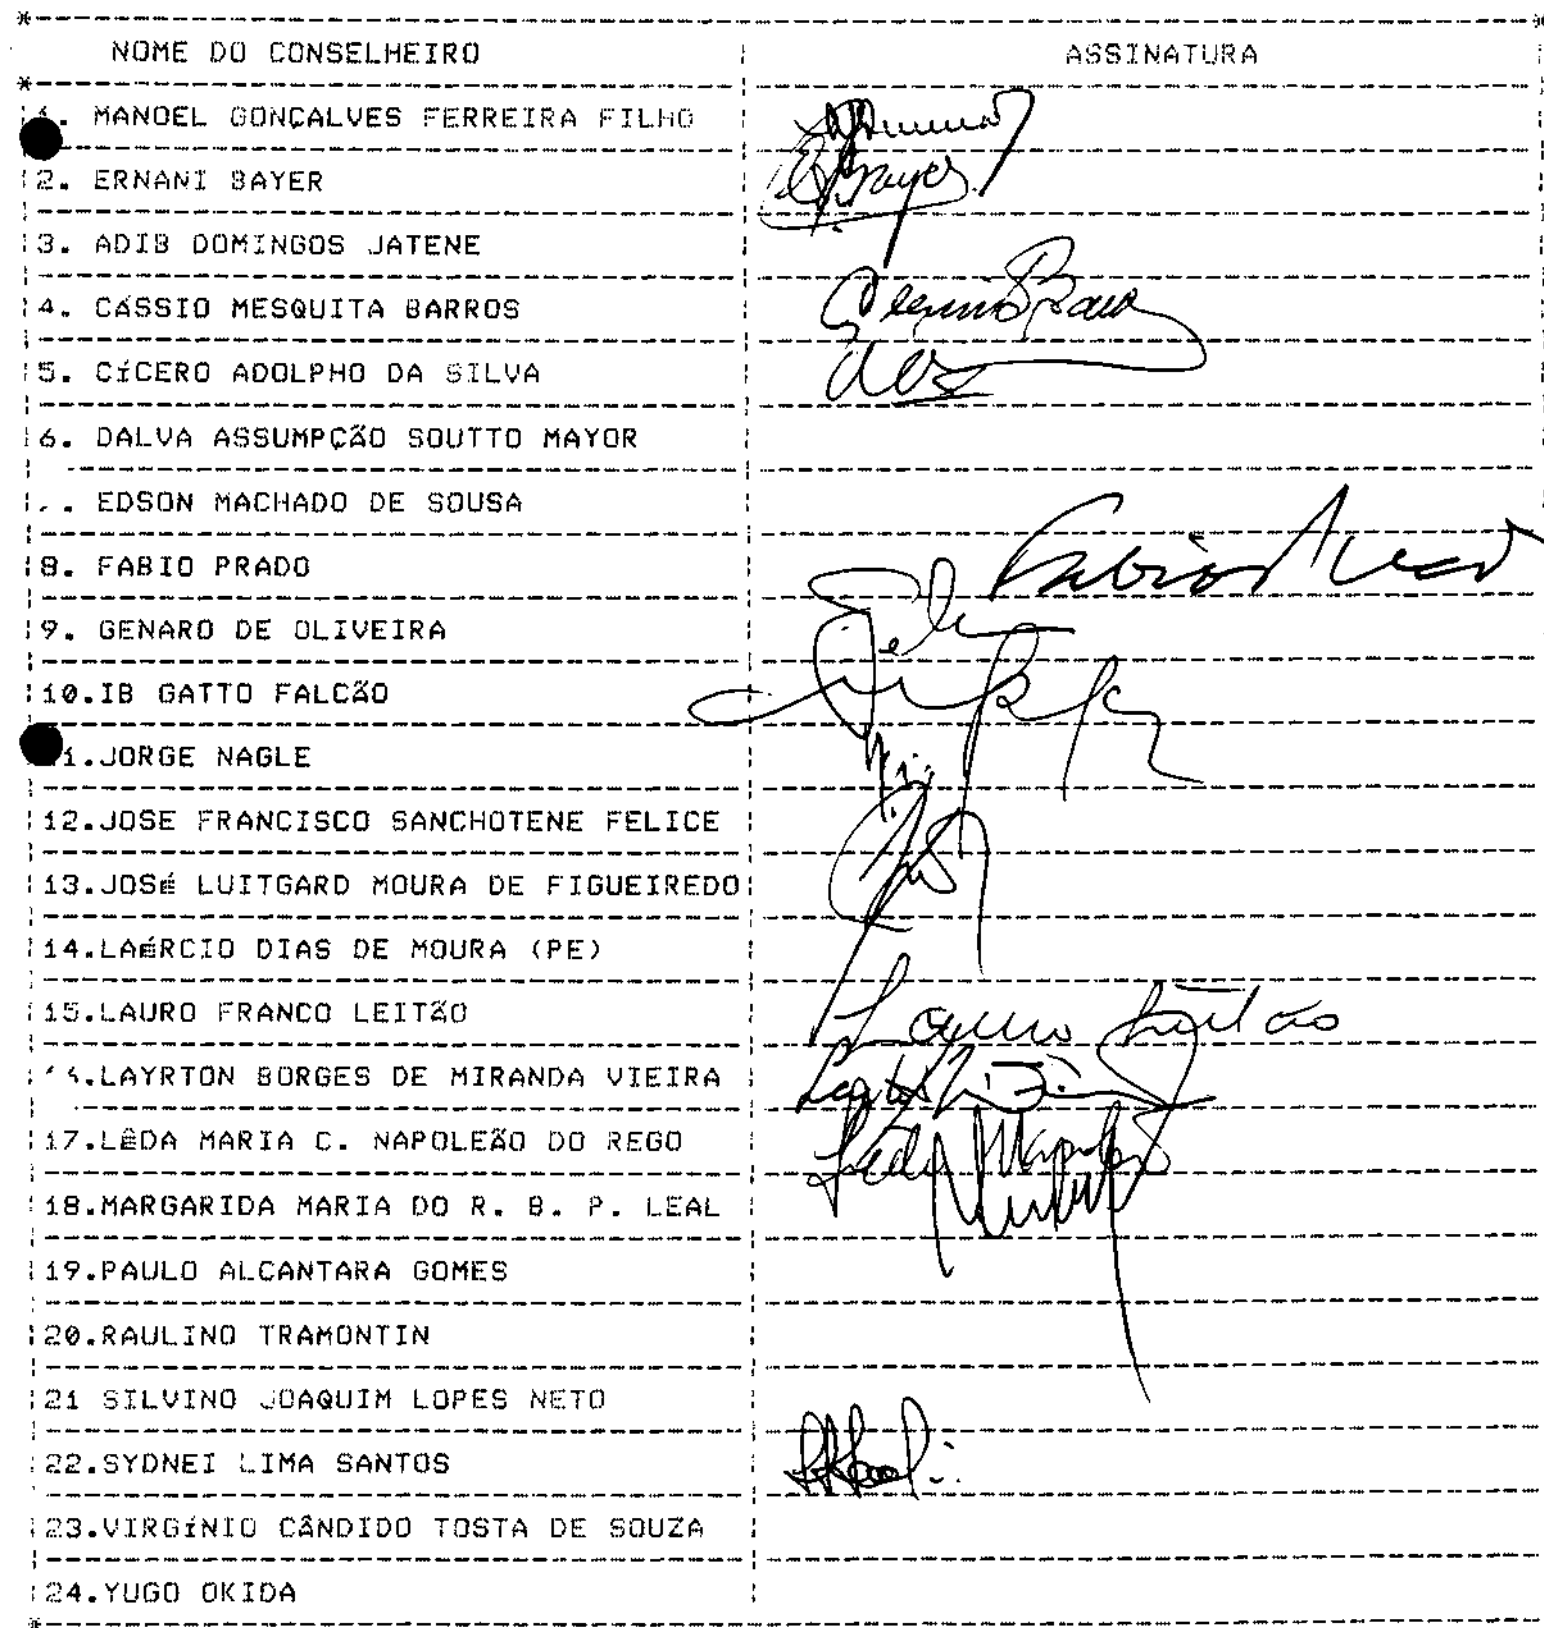 NOME DO CONSELHEIRO ASSINATURA
1. MANOEL GONÇALVES FERREIRA FILHO
2. ERNANI BAYER
3. ADIB DOMINGOS JATENE
4. CÁSSIO MESQUITA BARROS
5. CÍCERO ADOLPHO DA SILVA
6. DALVA ASSUMPÇÃO SOUTTO MAYOR
. EDSON MACHADO DE SOUSA
8. FABIO PRADO
9. GENARO DE OLIVEIRA
10.IB GATTO FALCÃO
1.JORGE NAGLE
12.JOSE FRANCISCO SANCHOTENE FELICE
13.JOSÉ LUITGARD MOURA DE FIGUEIREDO
14.LAÉRCIO DIAS DE MOURA (PE)
15.LAURO FRANCO LEITÃO Lauro Leitão
.LAYRTON BORGES DE MIRANDA VIEIRA
17.LÊDA MARIA C. NAPOLEÃO DO REGO
18.MARGARIDA MARIA DO R. B. P. LEAL
19.PAULO ALCANTARA GOMES
20.RAULINO TRAMONTIN
21 SILVINO JOAQUIM LOPES NETO
22.SYDNEI LIMA SANTOS
23.VIRGÍNIO CÂNDIDO TOSTA DE SOUZA
24.YUGO OKIDA